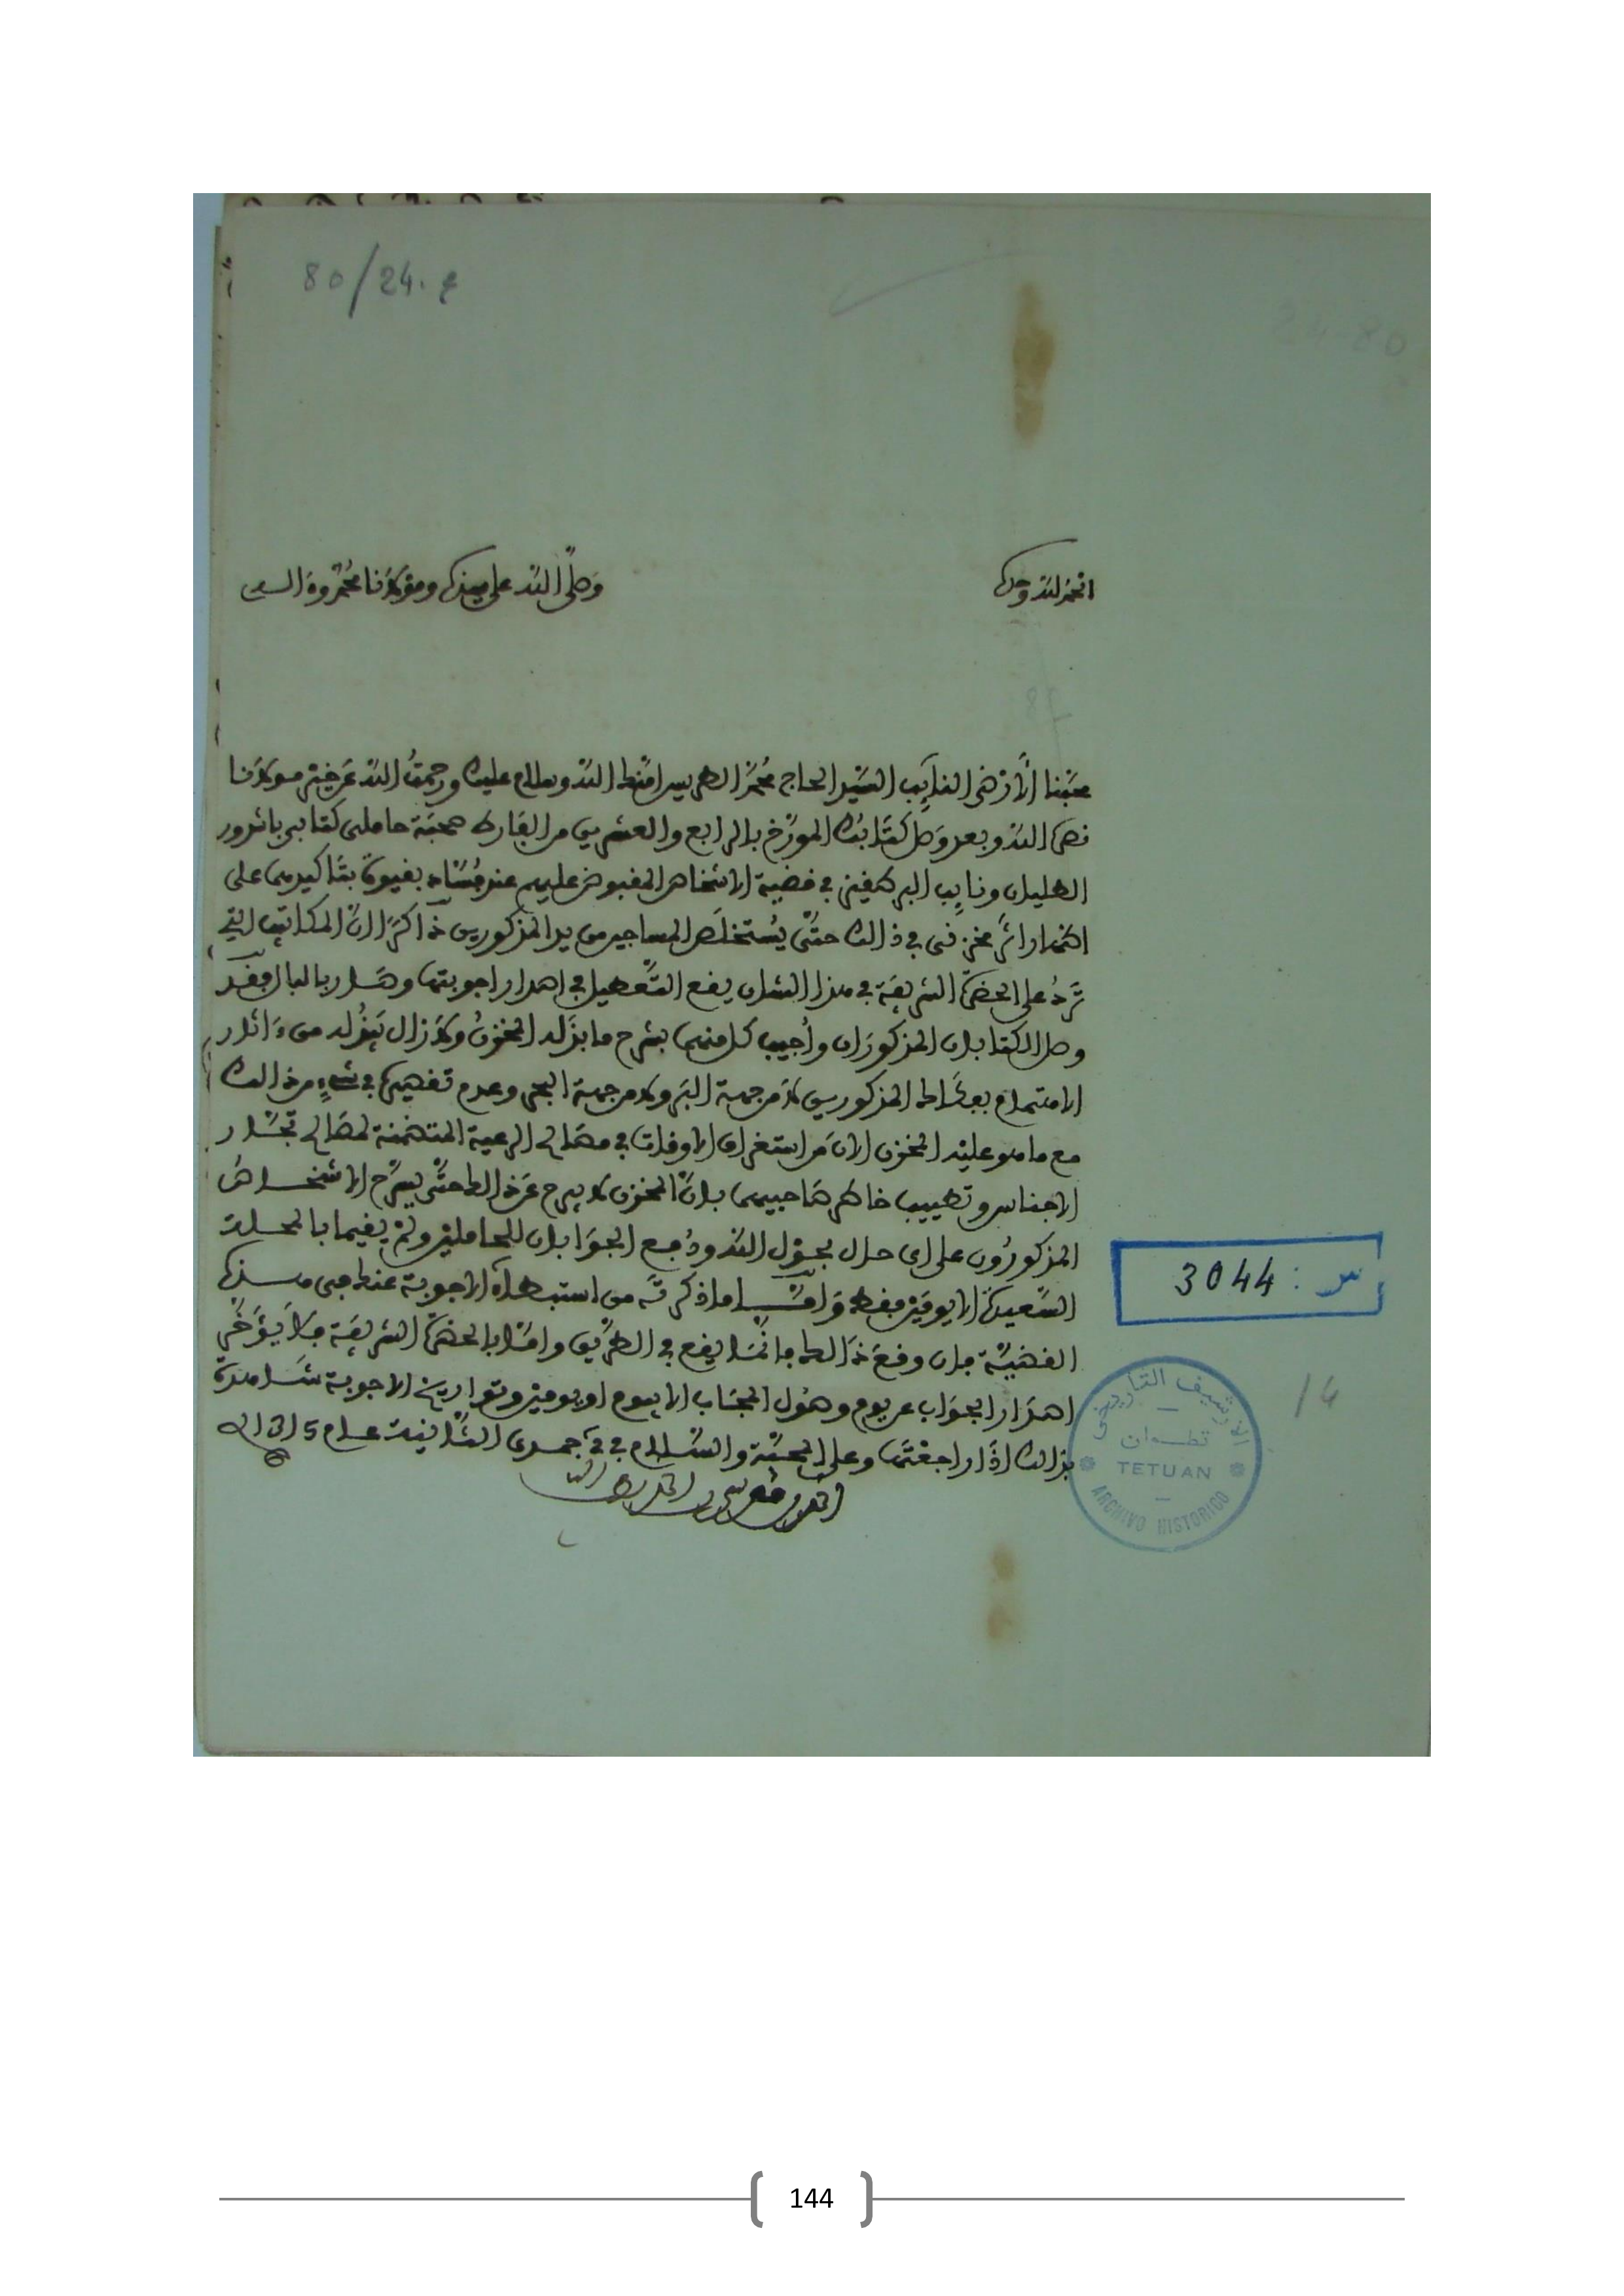 80/24. ع
24-80
الحمد لله وحده
وصلى الله على سيدنا ومولانا محمد وءاله
محبنا الارضى النايب السيد الحاج محمد الطريس امنك الله وسلام عليك ورحمت الله عن خير مولانا
نصره الله وبعد وصل كتابك المورخ بالرابع والعشرين من الفارط صحبة حاملى كتابى باشدور
الطليان ونايب البرطقيز في قضية الاشخاص المقبوض عليهم عند بقيوة بتاكيدهما على
اصدار امر مخزنى في ذالك حتى يستخلص المساجين من يد المذكورين ذاكرا ان المكاتب التي
ترد على الحضرة الشريفة في هذا الشان يقع التعطيل في اصدار اجوبتها وصار بالبال فقد
وصل الكتابان المذكوران واجيب كل منهما بشرح ما بذله المخزن ولازال يبذله من
الاهتمام بفكاك المذكورين لا من جهة البر ولا من جهة البحر وعدم تقصيره في شيء من ذالك
مع ما هو عليه المخزن الان من استغراق الاوقات في مصالح الرعية المتضمنة لمصالح تجار
الاجناس وتطييب خاطر صاحبيهما بان المخزن لا يبرح عن ذالك حتى يسرح الاشخاص
المذكورون على اى حال بحول الله ودفع الجوابان للحاملين ولم يقيما بالمحلة
السعيدة الا يومين فقط واما ما ذكرته من استبطاء الاجوبة عنك حتى من هذه
القضية فان وقع ذالك فانما يقع في الطريق واما بالحضرة الشريفة فلا يؤخر
اصدار الجواب عن يوم وصول الجناب الا يوم او يومين وتواريخ الاجوبة شاهدة
بذالك اذا راجعتها وعلى المحبة والسلام في جمدى الثانية عام
س : 3044
الارشيف التاريخي
تطوان
TETUAN
ARCHIVO HISTORICO
14
144